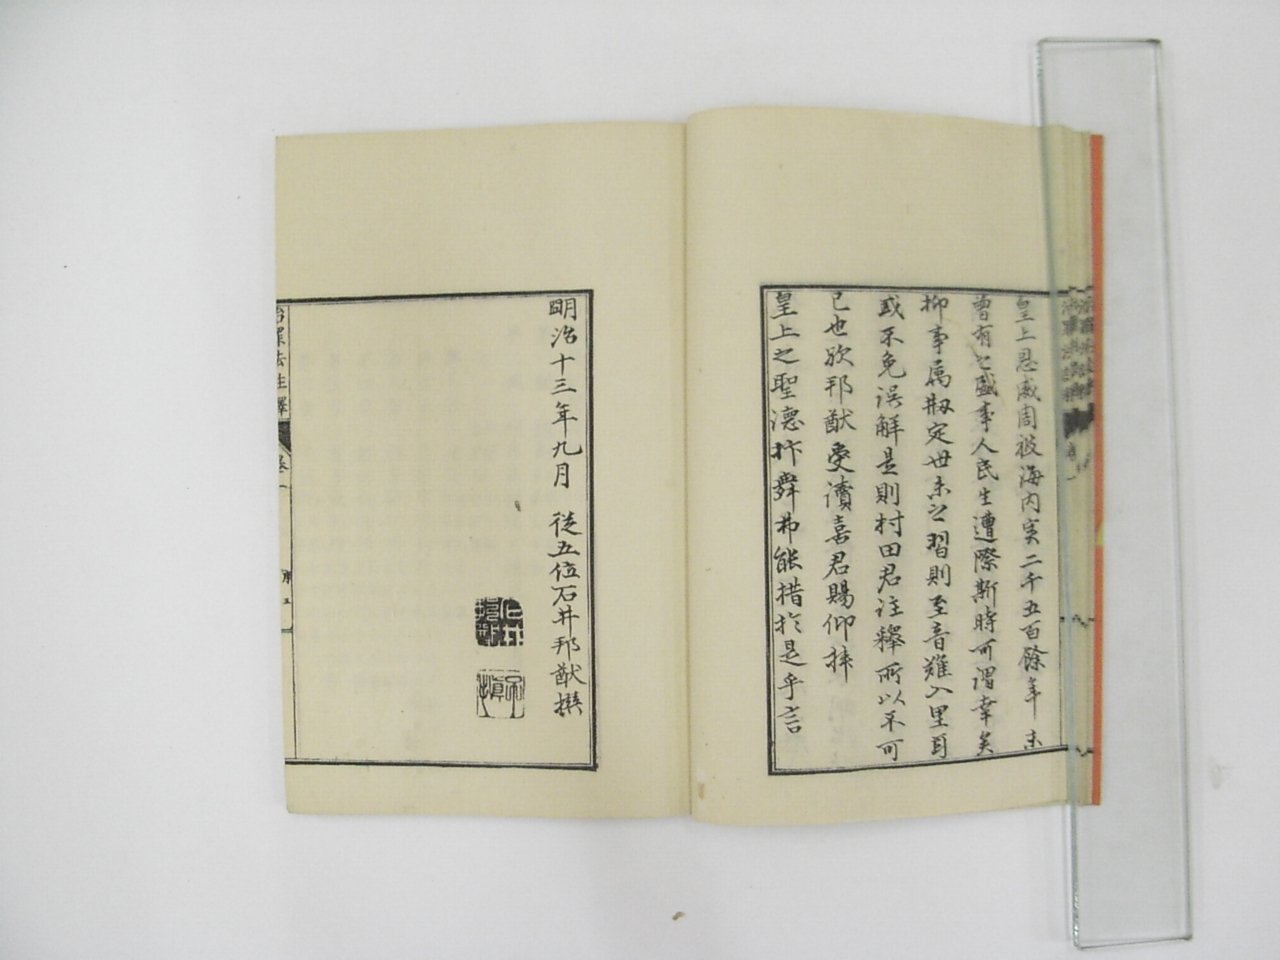 皇上恩威周被海内实二千五百餘年未
曽有之盛事人民生遭際斯時可謂幸矣
抑事属刱定世未之習則至音難入里耳
或不免误解是則村田君註釋所以不可
已也欤邦猷受讀嘉君賜仰拜
皇上之聖德抃舞弗能措於是乎言
明治十三年九月 従五位石井邦猷撰
治罪法註釋 卷一 序 五